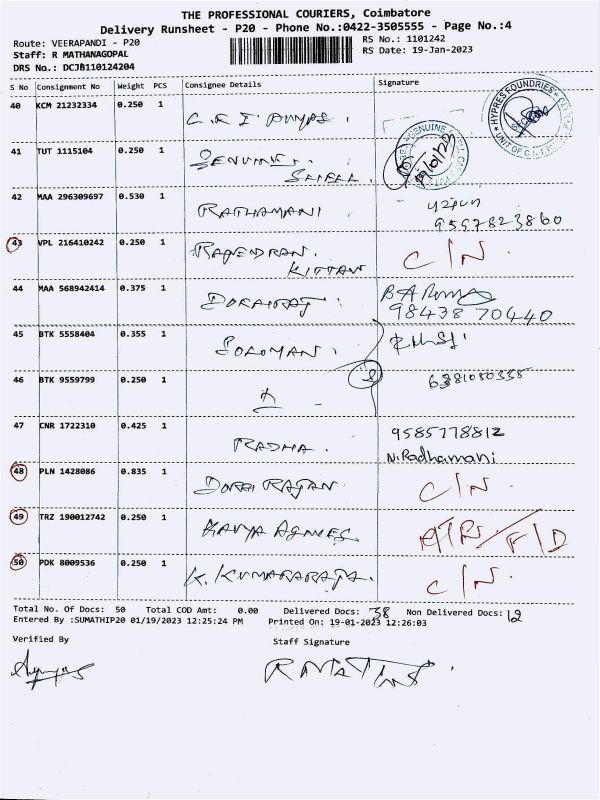 THE PROFESSIONAL COURIERS, Coimbatore
Delivery Runsheet - P20 - Phone No.:0422-3505555 - Page No.:4
Route: VEERAPANDI - P20
RS No.: 1101242
Staff: R MATHANAGOPAL
RS Date: 19-Jan-2023
DRS No.: DCJB110124204
S No Consignment No Weight PCS Consignee Details Signature
40 KCM 21232334 0.250 1 C.R.I. PUMPS.
HYPRES FOUNDRIES
UNIT OF C.R.I.
41 TUT 1115104 0.250 1 GENUINE
GENUINE
19/01/23
42 MAA 296309697 0.530 1 RATHAMANI
9597823860
43 VPL 216410242 0.250 1 RAJENDRAN. C/N.
KITTAN
44 MAA 568942414 0.375 1 DORAIRAJ.
98438 70440
45 BTK 5558404 0.355 1 SOLOMAN.
46 BTK 9559799 0.250 1 6381050335
47 CNR 1722310 0.425 1 RADHA. 9585778812
N.Radhamani
48 PLN 1428086 0.835 1 DORAI RAJAN. C/N.
49 TRZ 190012742 0.250 1 KAVYA AGNIES F/D
50 PDK 8009536 0.250 1 K. KUMARARAJA. C/N.
Total No. Of Docs: 50 Total COD Amt: 0.00 Delivered Docs: 38 Non Delivered Docs: 12
Entered By :SUMATHIP20 01/19/2023 12:25:24 PM Printed On: 19-01-2023 12:26:03
Verified By Staff Signature